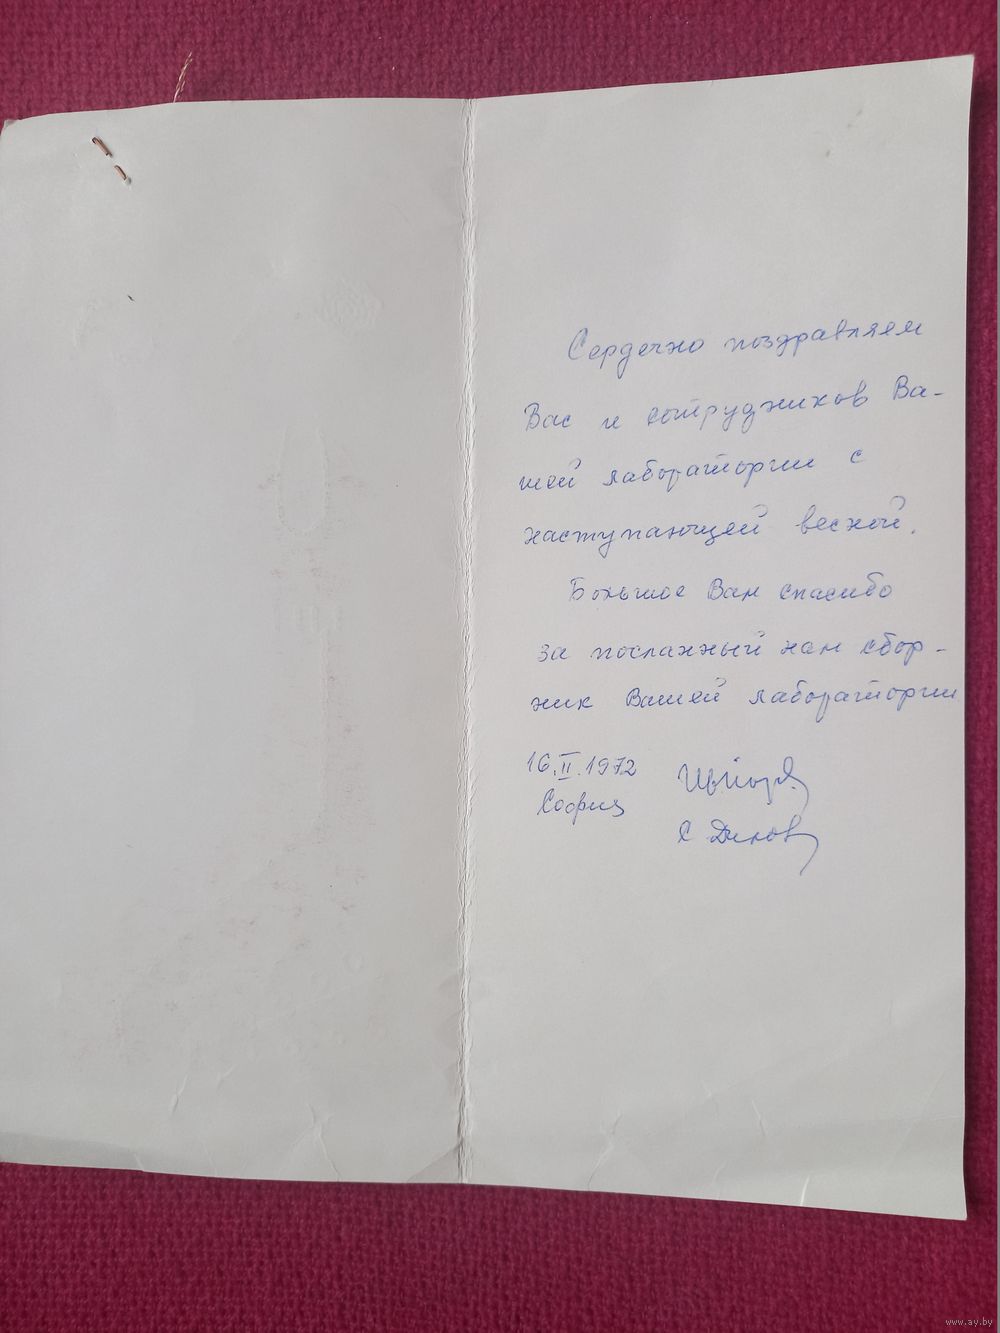 Сердечно поздравляем
Вас и сотрудников Ва-
шей лаборатории с
наступающей весной.
Большое Вам спасибо
за посланный нам сбор-
ник Вашей лаборатории
16.II.1972
София
С Динов
www.ay.by